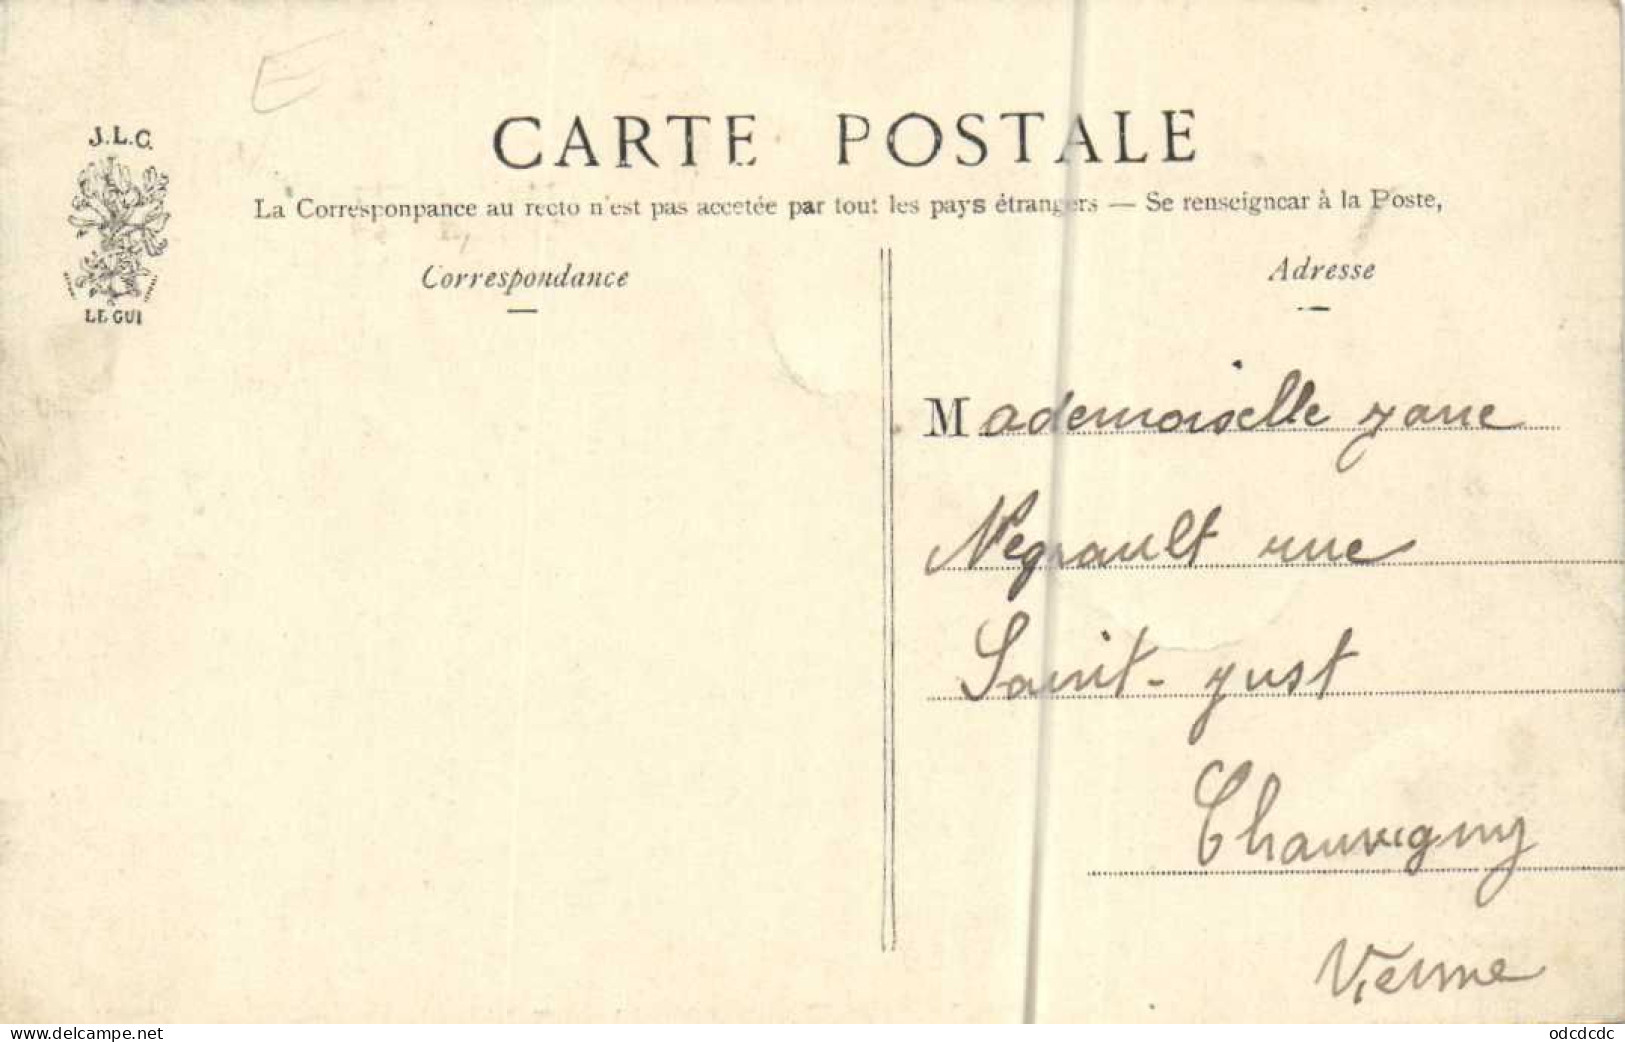 E
J.L.C.
CARTE POSTALE
La Corresponpance au recto n'est pas accetée par tout les pays étrangers — Se renseigncar à la Poste,
Correspondance
Adresse
LE GUI
Mademoiselle Jane
Negrault rue
Saint-Just
Chauvigny
Vienne
www.delcampe.net
odcdcdc